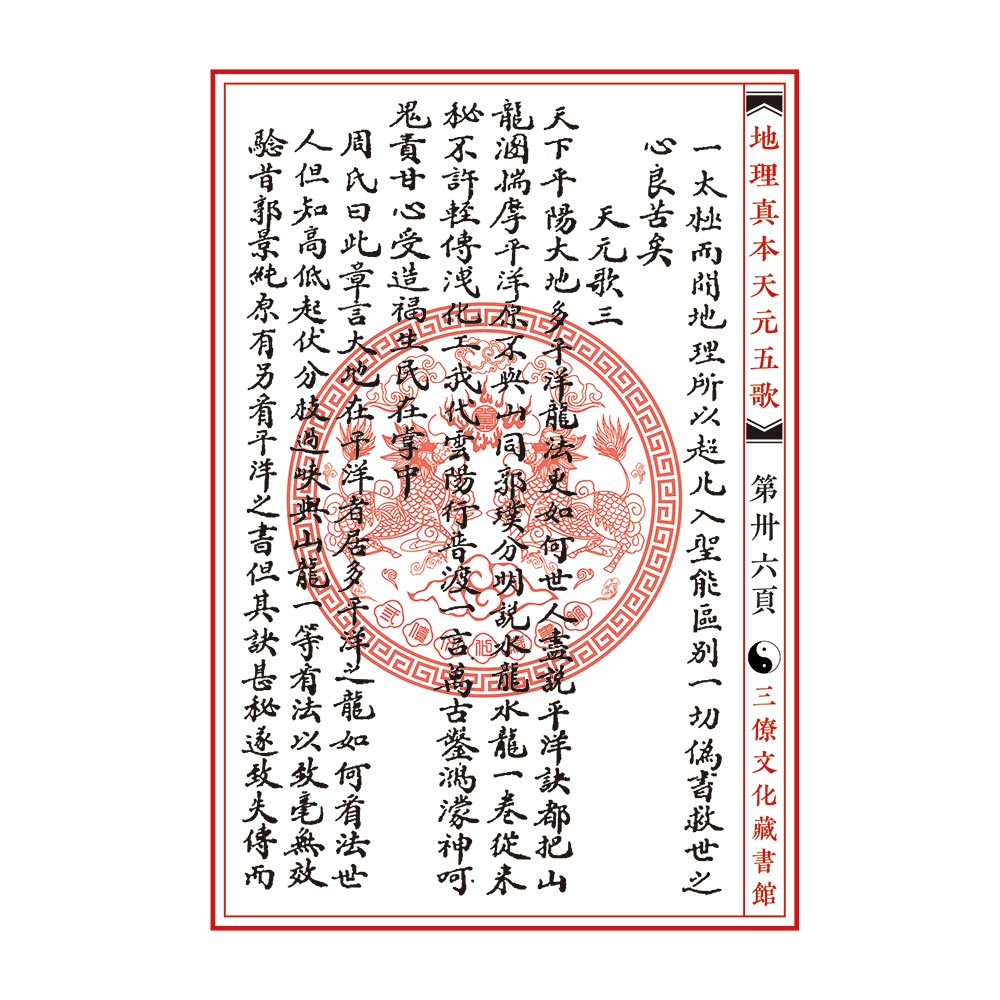 地理真本天元五歌
第卅六頁
三僚文化藏書館
一太極而開地理所以超凡入聖能區別一切偽書救世之
心良苦矣
天元歌三
天下平陽大地多平洋龍法更如何世人盡說平洋訣都把山
龍溷揣摩平洋原不與山同郭璞分明說水龍水龍一卷從来
秘不許輕傳洩化工我代雲陽行普渡一言萬古鑿鴻濛神呵
鬼責甘心受造福生民在掌中
周氏曰此章言大地在平洋者居多平洋之龍如何看法世
人但知高低起伏分枝過峽與山龍一等看法以致毫無效
驗昔郭景純原有另看平洋之書但其訣甚秘遂致失傳而